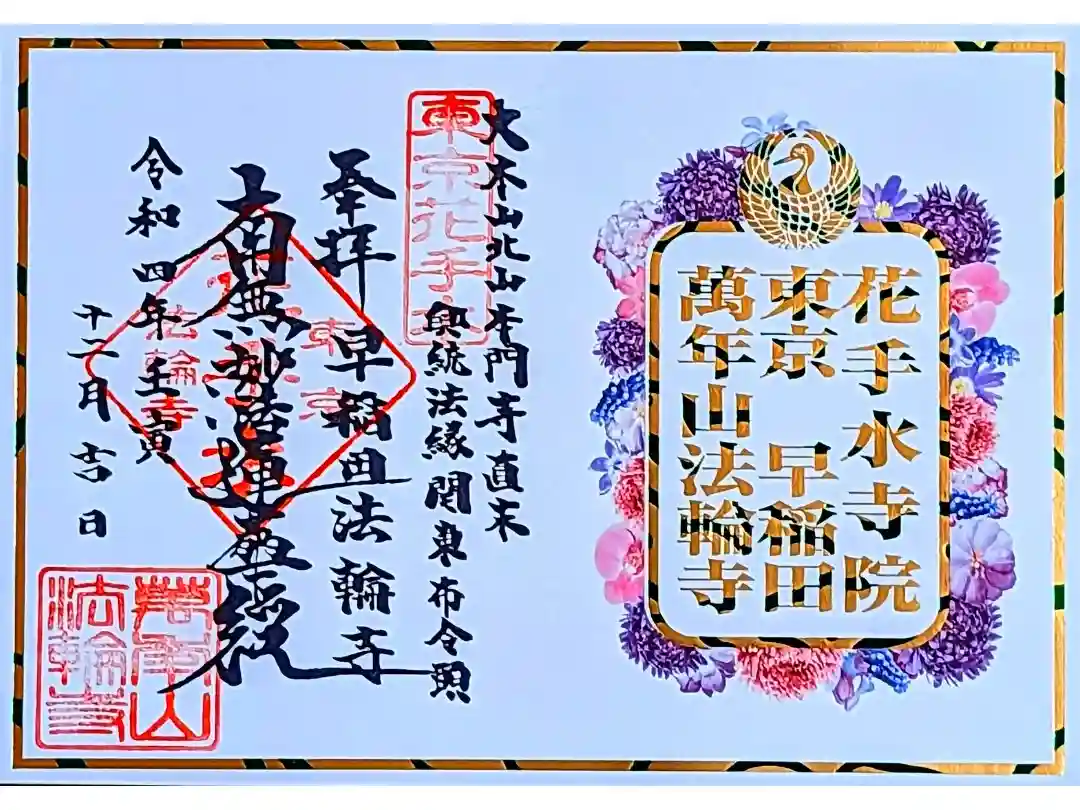 花手水寺院
東京 早稲田
萬年山法輪寺
大本山北山本門寺直末
興統法縁関東布令頭
東京花手水
奉拝 早稲田法輪寺
南無妙法蓮華経
東京
法輪寺
令和四年壬寅
十二月吉日
萬年山
法輪寺